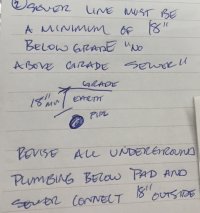 ② SEWER LINE MUST BE
A MINIMUM OF 18"
BELOW GRADE "NO
ABOVE GRADE SEWER"
GRADE
18" MIN EARTH
PIPE
REVISE ALL UNDERGROUND
PLUMBING BELOW PAD AND
SEWER CONNECT 18" OUTSIDE